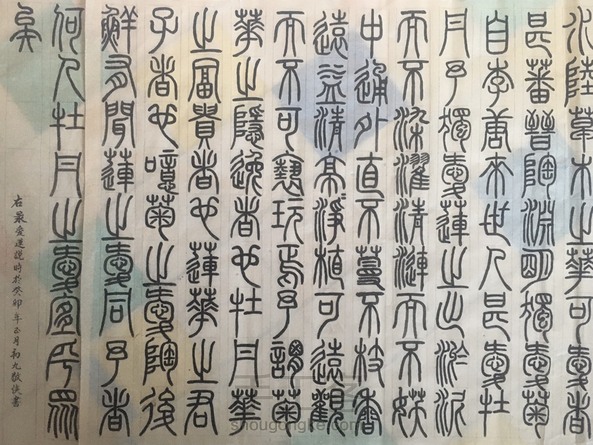 水陸草木之華可愛者
甚蕃晉陶淵明獨愛菊
自李唐來世人甚愛牡
丹予獨愛蓮之出淤泥
而不染濯清漣而不妖
中通外直不蔓不枝香
遠益清亭淨植可遠觀
而不可褻玩焉予謂菊
華之隱逸者也牡丹華
之富貴者也蓮華之君
子者也噫菊之愛陶後
鮮有聞蓮之愛同予者
何人牡丹之愛宜乎眾
矣
右最愛蓮說時於癸卯年正月初九敬書